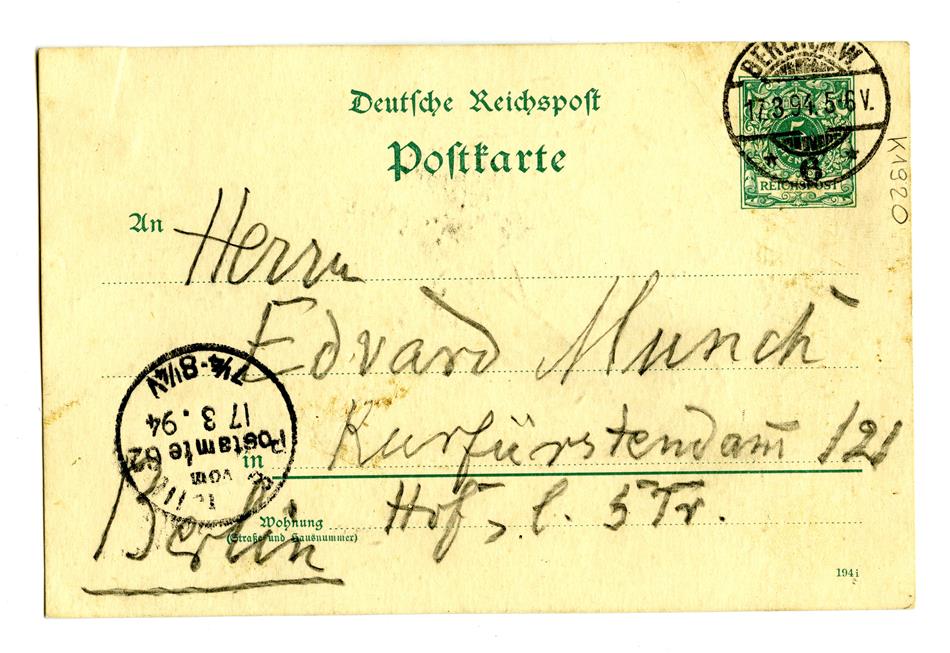 Deutsche Reichspost
Postkarte
BERLIN
17.3.94. 5-6 V.
5
6
REICHSPOST
K1920
An Herrn
Edvard Munch
Kurfürstendam 121
in Berlin
Wohnung Hof, l. 5 Tr.
(Straße und Hausnummer)
194 i
vom
Postamte 62
17 3. 94
7¼-8¼V